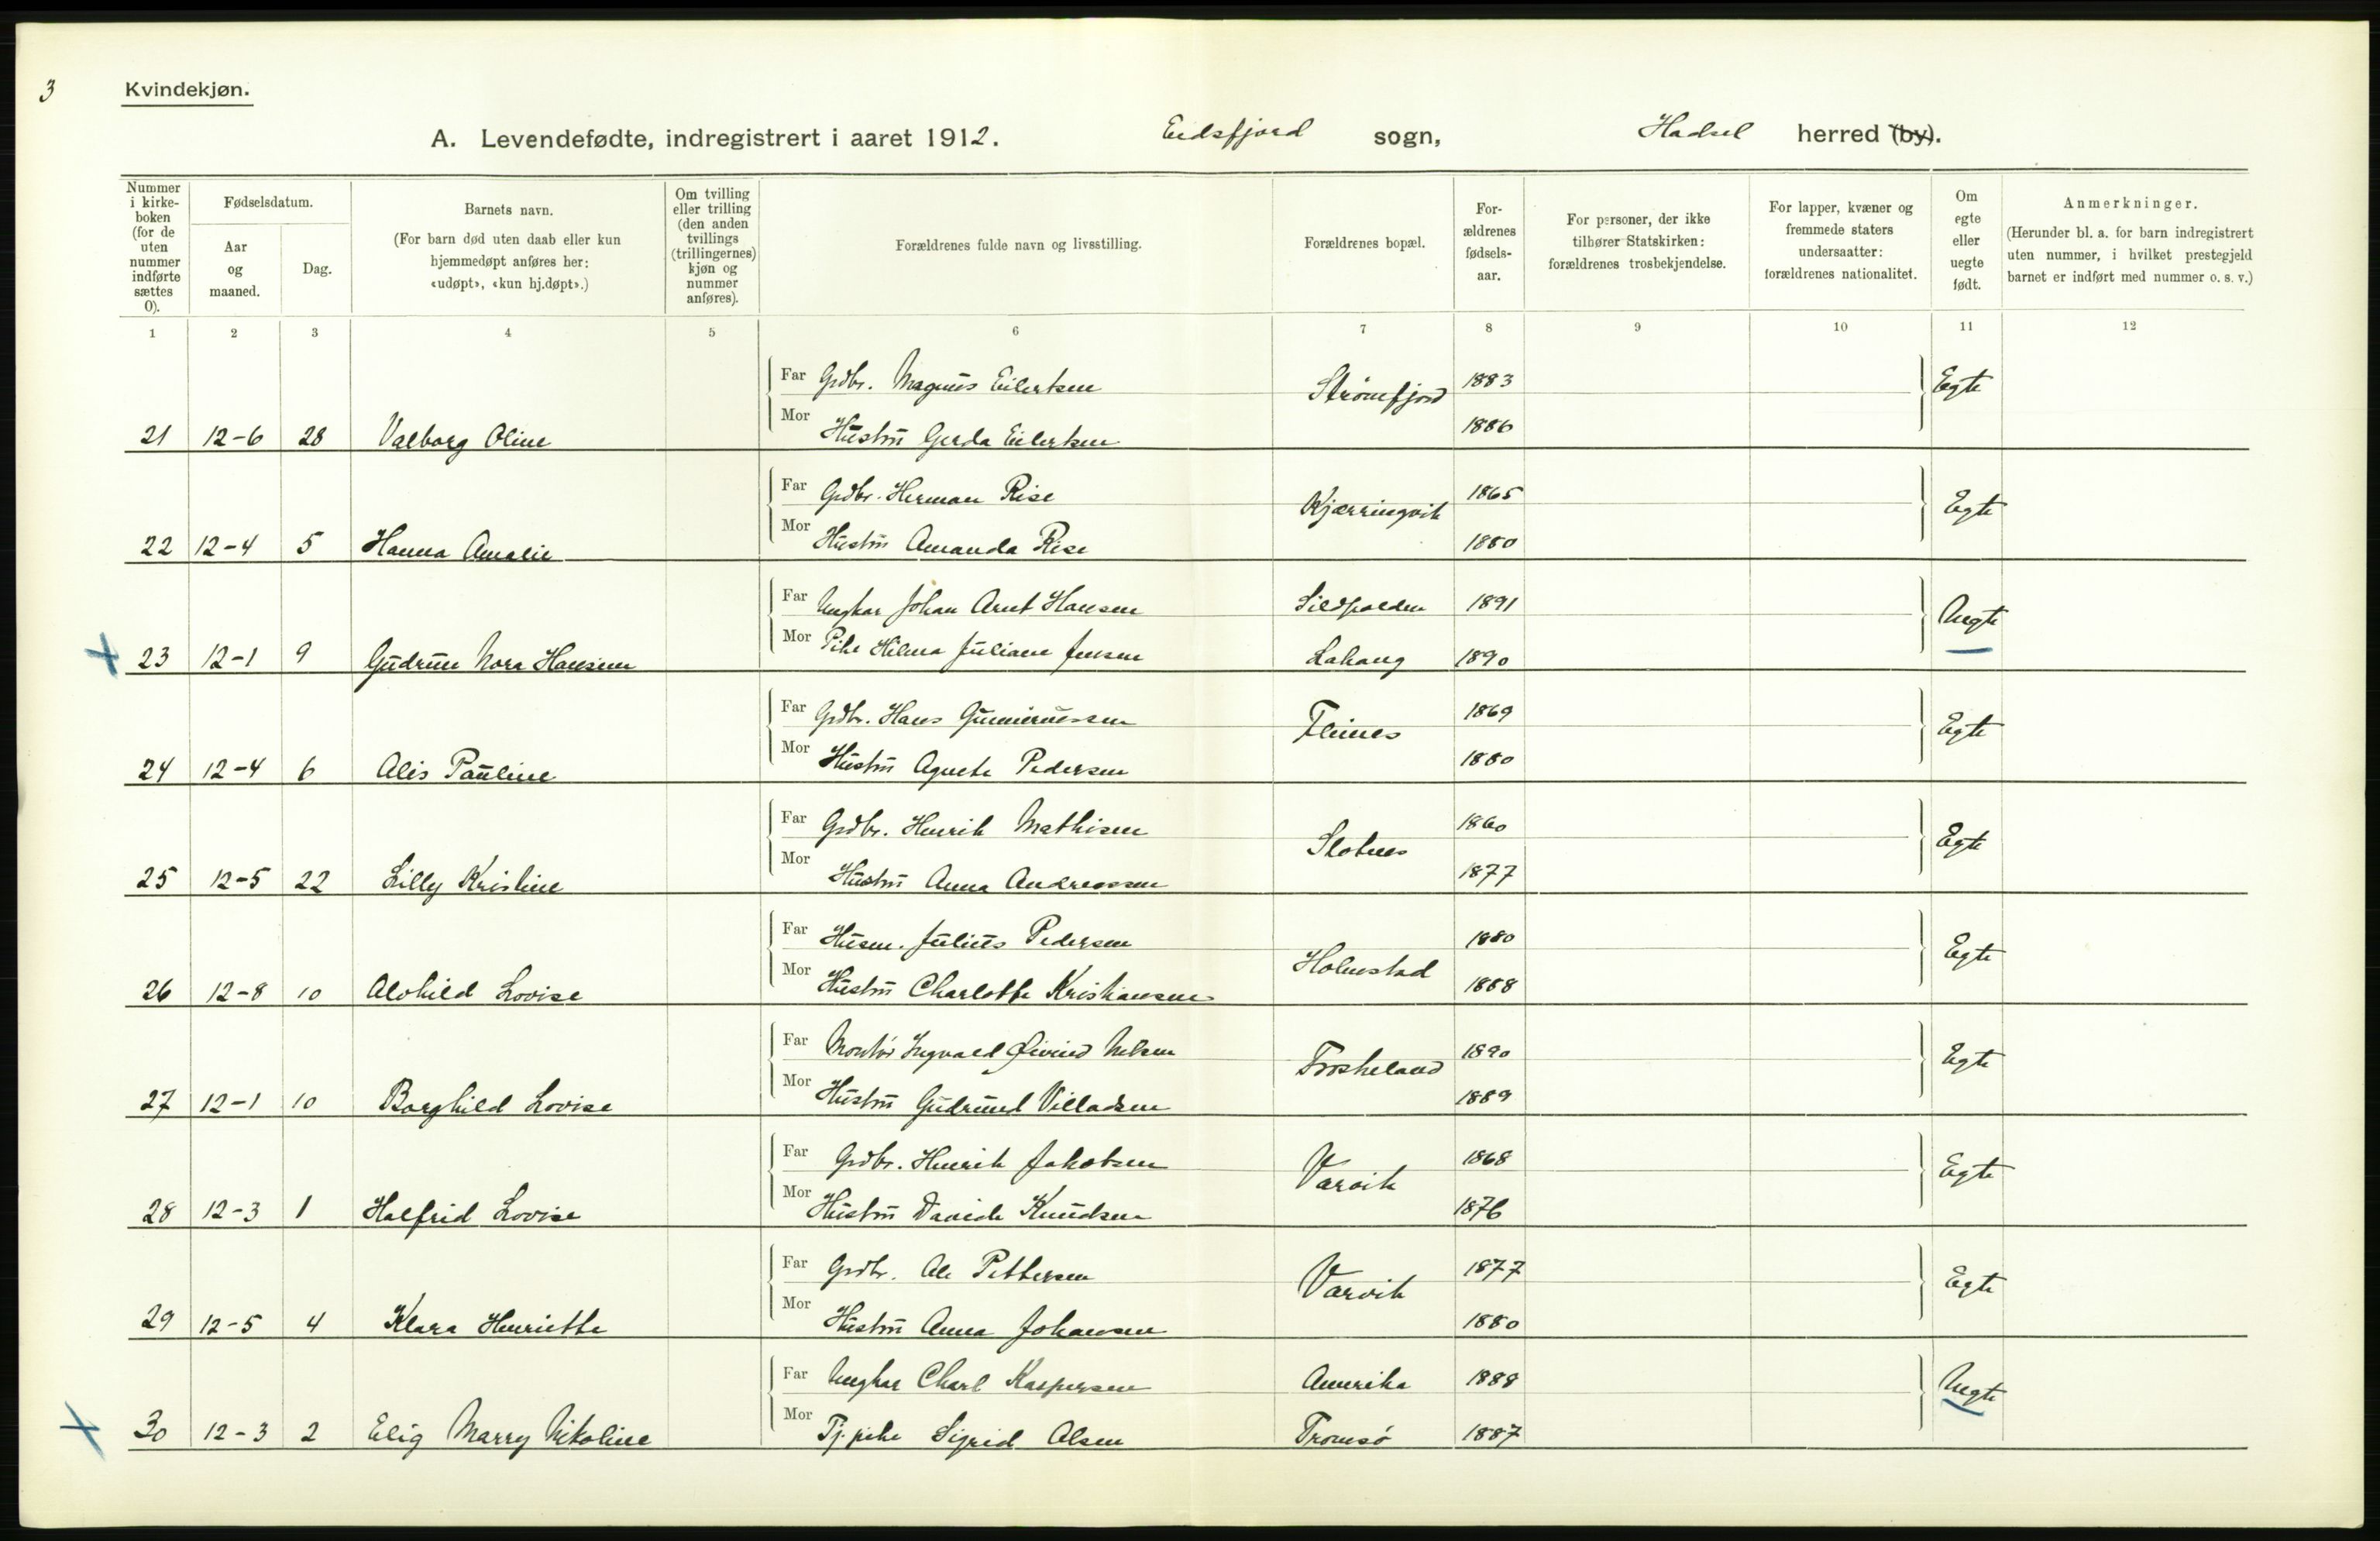 3
Kvindekjøn.
A. Levendefødte, indregistrert i aaret 1912. Eidsfjord sogn, Hadsel herred (by).
Nummer i kirke- boken (for de uten nummer indførte sættes 0).
Fødselsdatum.
Aar og maaned.
Dag.
Barnets navn.
(For barn død uten daab eller kun hjemmedøpt anføres her: «udøpt», «kun hj.døpt».)
Om tvilling eller trilling (den anden tvillings (trillingernes) kjøn og nummer anføres).
Forældrenes fulde navn og livsstilling.
Forældrenes bopæl.
For- ældrenes fødsels- aar.
For personer, der ikke tilhører Statskirken: forældrenes trosbekjendelse.
For lapper, kvæner og fremmede staters undersaatter: forældrenes nationalitet.
Om egte eller uegte født.
Anmerkninger.
(Herunder bl. a. for barn indregistrert uten nummer, i hvilket prestegjeld barnet er indført med nummer o. s. v.)
1 2 3 4 5 6 7 8 9 10 11 12
Far Grdbr. Magnus Eilertsen Strømfjord 1883 Egte
21 12-6 28 Valborg Oline Mor Hustru Gerda Eilertsen 1886
Far Grdbr. Herman Rise Kjærringvik 1865 Egte
22 12-4 5 Hanna Amalie Mor Hustru Amanda Rise 1880
Far Ungkar Johan Arnt Hansen Sildpolden 1891 Uegte
23 12-1 9 Gudrun Nora Hansen Mor Pike Hilma Juliane Jensen Lahaug 1890
Far Grdbr. Hans Gunnerussen Fleines 1869 Egte
24 12-4 6 Alis Pauline Mor Hustru Agnete Pedersen 1880
Far Grdbr. Henrik Mathisen Slotnes 1860 Egte
25 12-5 22 Lilly Kristine Mor Hustru Anna Andreassen 1877
Far Husm. Julius Pedersen Holmstad 1880 Egte
26 12-8 10 Alvhild Lovise Mor Hustru Charlotte Kristiansen 1888
Far Montør Ingvald Øivind Nilsen Froskeland 1890 Egte
27 12-1 10 Borghild Lovise Mor Hustru Gudrund Villadsen 1889
Far Grdbr. Henrik Jakobsen Varvik 1868 Egte
28 12-3 1 Halfrid Lovise Mor Hustru Davide Knudsen 1876
Far Grdbr. Ole Pettersen Varvik 1877 Egte
29 12-5 4 Klara Henriette Mor Hustru Anna Johansen 1880
Far Ungkar Charl Kaspersen Amerika 1888 Uegte
30 12-3 2 Elig Marry Nikoline Mor Tj.pike Sigrid Olsen Tromsø 1887